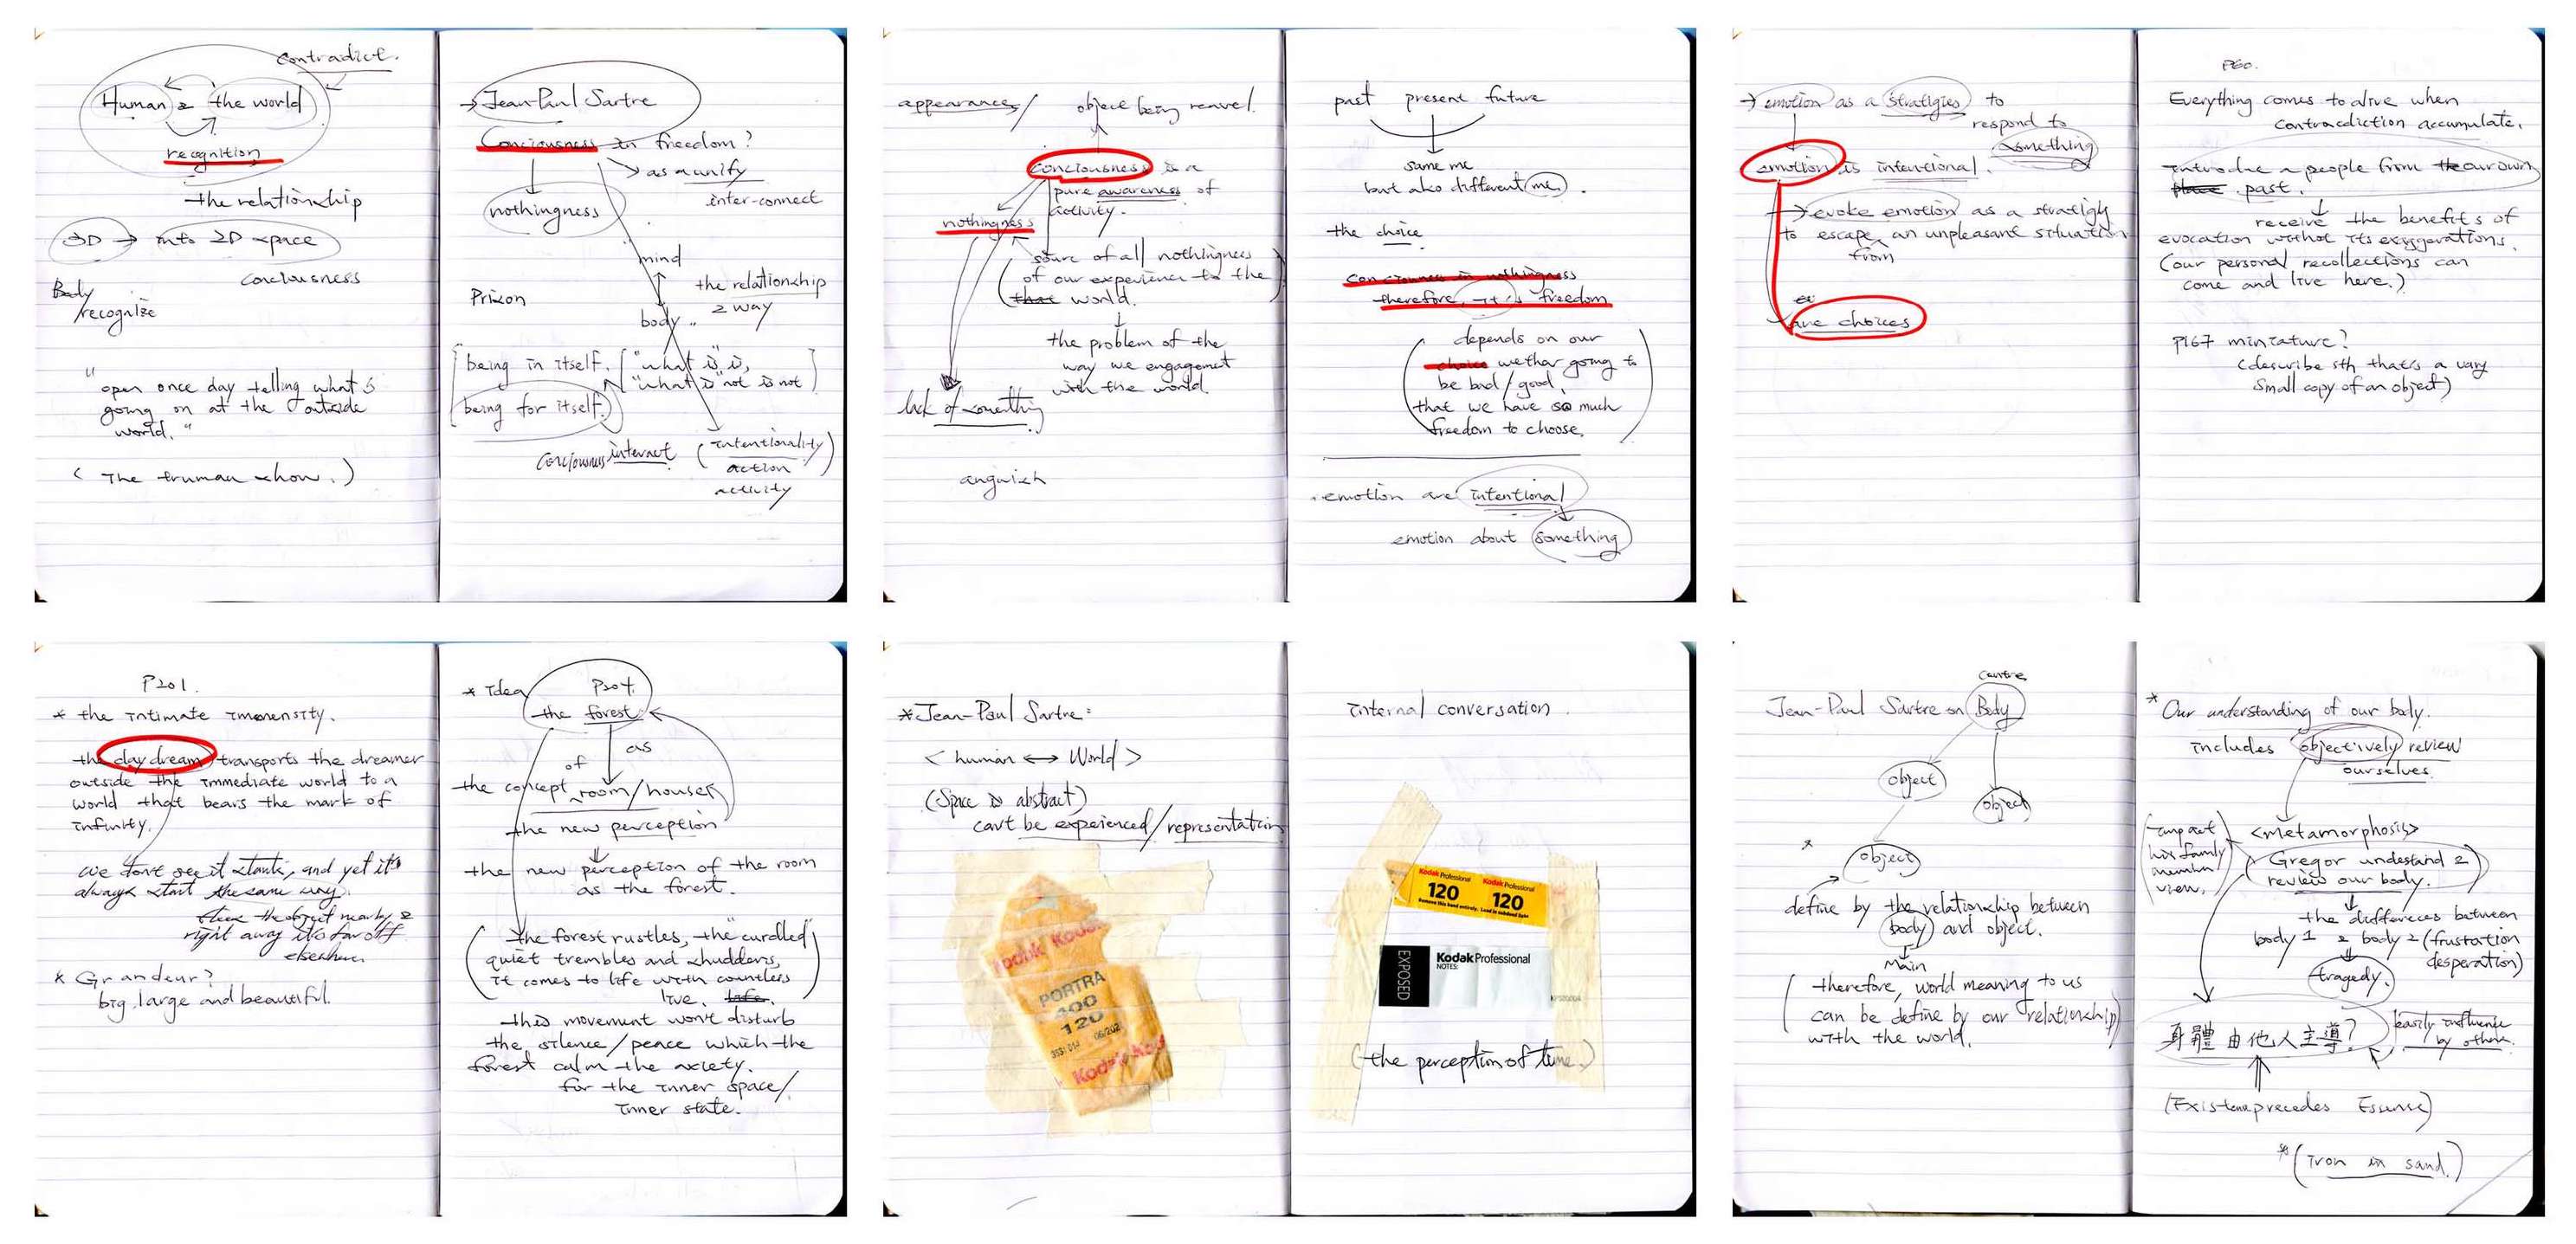 contradict.
Human & the world
recognition
the relationship
3D → into 2D space
conciousness
Body
/recognize
"open once day telling what's
going on at the outside
world."
( The truman show. )
→ Jean-Paul Sartre
Conciousness is freedom?
→ as a unify
inter-connect
nothingness
mind
the relationship
2 way
Prison
body
being in itself. ("what is" is,
"what is" not is not)
being for itself.
conciousness interact (intentionality)
action
activity
appearances/ object being reavel.
conciousness is a
pure awareness of
activity.
nothingness
sourc of all nothingness
of our experience to the
that world.
the problem of the
way we engagement
with the world.
lack of something
anguish
past present future
same me
but also different me.
the choice
conciouness is nothingness
therefore, it is freedom
depends on our
choice wethar going to
be bad/good,
that we have so much
freedom to choose.
emotion are intentional
emotion about something
→ emotion as a stratigies to
respond to
something
emotion is intentional.
→ evoke emotion as a stratigy
to escape an unpleasant situation
from
are choices
P60.
Everything comes to alive when
contracdiction accumulate.
introduce a people from the our own
place past.
receive the benefits of
evocation withot its exaggerations.
(our personal recollections can
come and live here.)
P167 miniature?
(describe sth that's a vary
small copy of an object)
P201.
* the intimate immensity.
the daydream transports the dreamer
outside the immediate world to a
world that bears the mark of
infinity.
We don't see it start, and yet it's
always start the same way.
flees the object nearby &
right away it's far off
elsewhere
* Grandeur?
big, large and beautiful.
* Idea P204.
the forest
as
of
the concept room/house
the new perception
the new perception of the room
as the forest.
(the forest rustles, the "curdled"
quiet trembles and shudders,
it comes to life with countless
live. life.
this movement won't disturb
the silence/peace which the
forest calm the axiety.
for the inner space/
inner state.
* Jean-Paul Sartre:
< human ↔ World >
(Space is abstract)
can't be experienced/representation
Kodak Kodak
PORTRA
400
120
Kodak
internal conversation.
Kodak Professional Kodak Professional
120 120
EXPOSED
Kodak Professional
NOTES:
(the perception of time.)
centre
Jean-Paul Sartre on Body
object
object
*
object
define by the relationship between
body and object.
Main
(therefore, world meaning to us
can be define by our relationship)
with the world.
* Our understanding of our body.
includes objectively review
ourselves.
<metamorphosis>
(impact
his family
member
view.)
(Gregor undestand &
review our body.)
the differeces between
body 1 & body 2 (frustation
desperation)
tragedy.
身體由他人主導?
easily influence
by others.
(Existence precedes Essense)
* (iron in sand.)